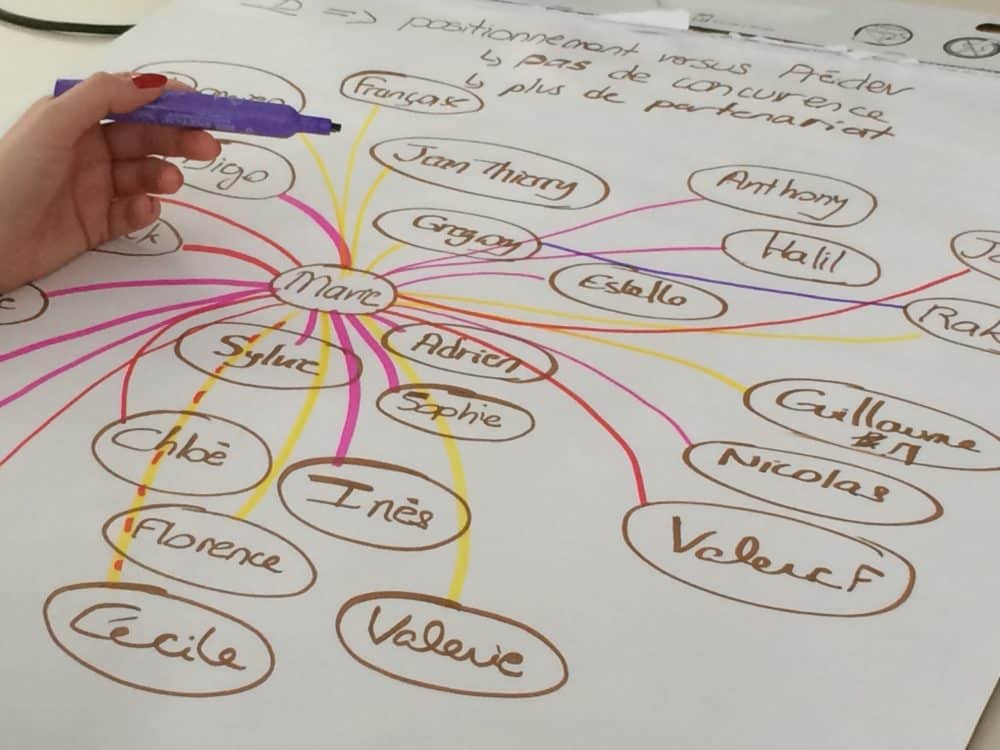 => positionnement versus Préder
↳ pas de concurrence
↳ plus de partenariat
Française
Digo
Jean Thierry
Anthony
Gregory
Halil
Estelle
Marie
Rak
Sylvie
Adrien
Sophie
Guillaume
Chloé
Nicolas
Inès
Florence
Valerie F
Cécile
Valerie